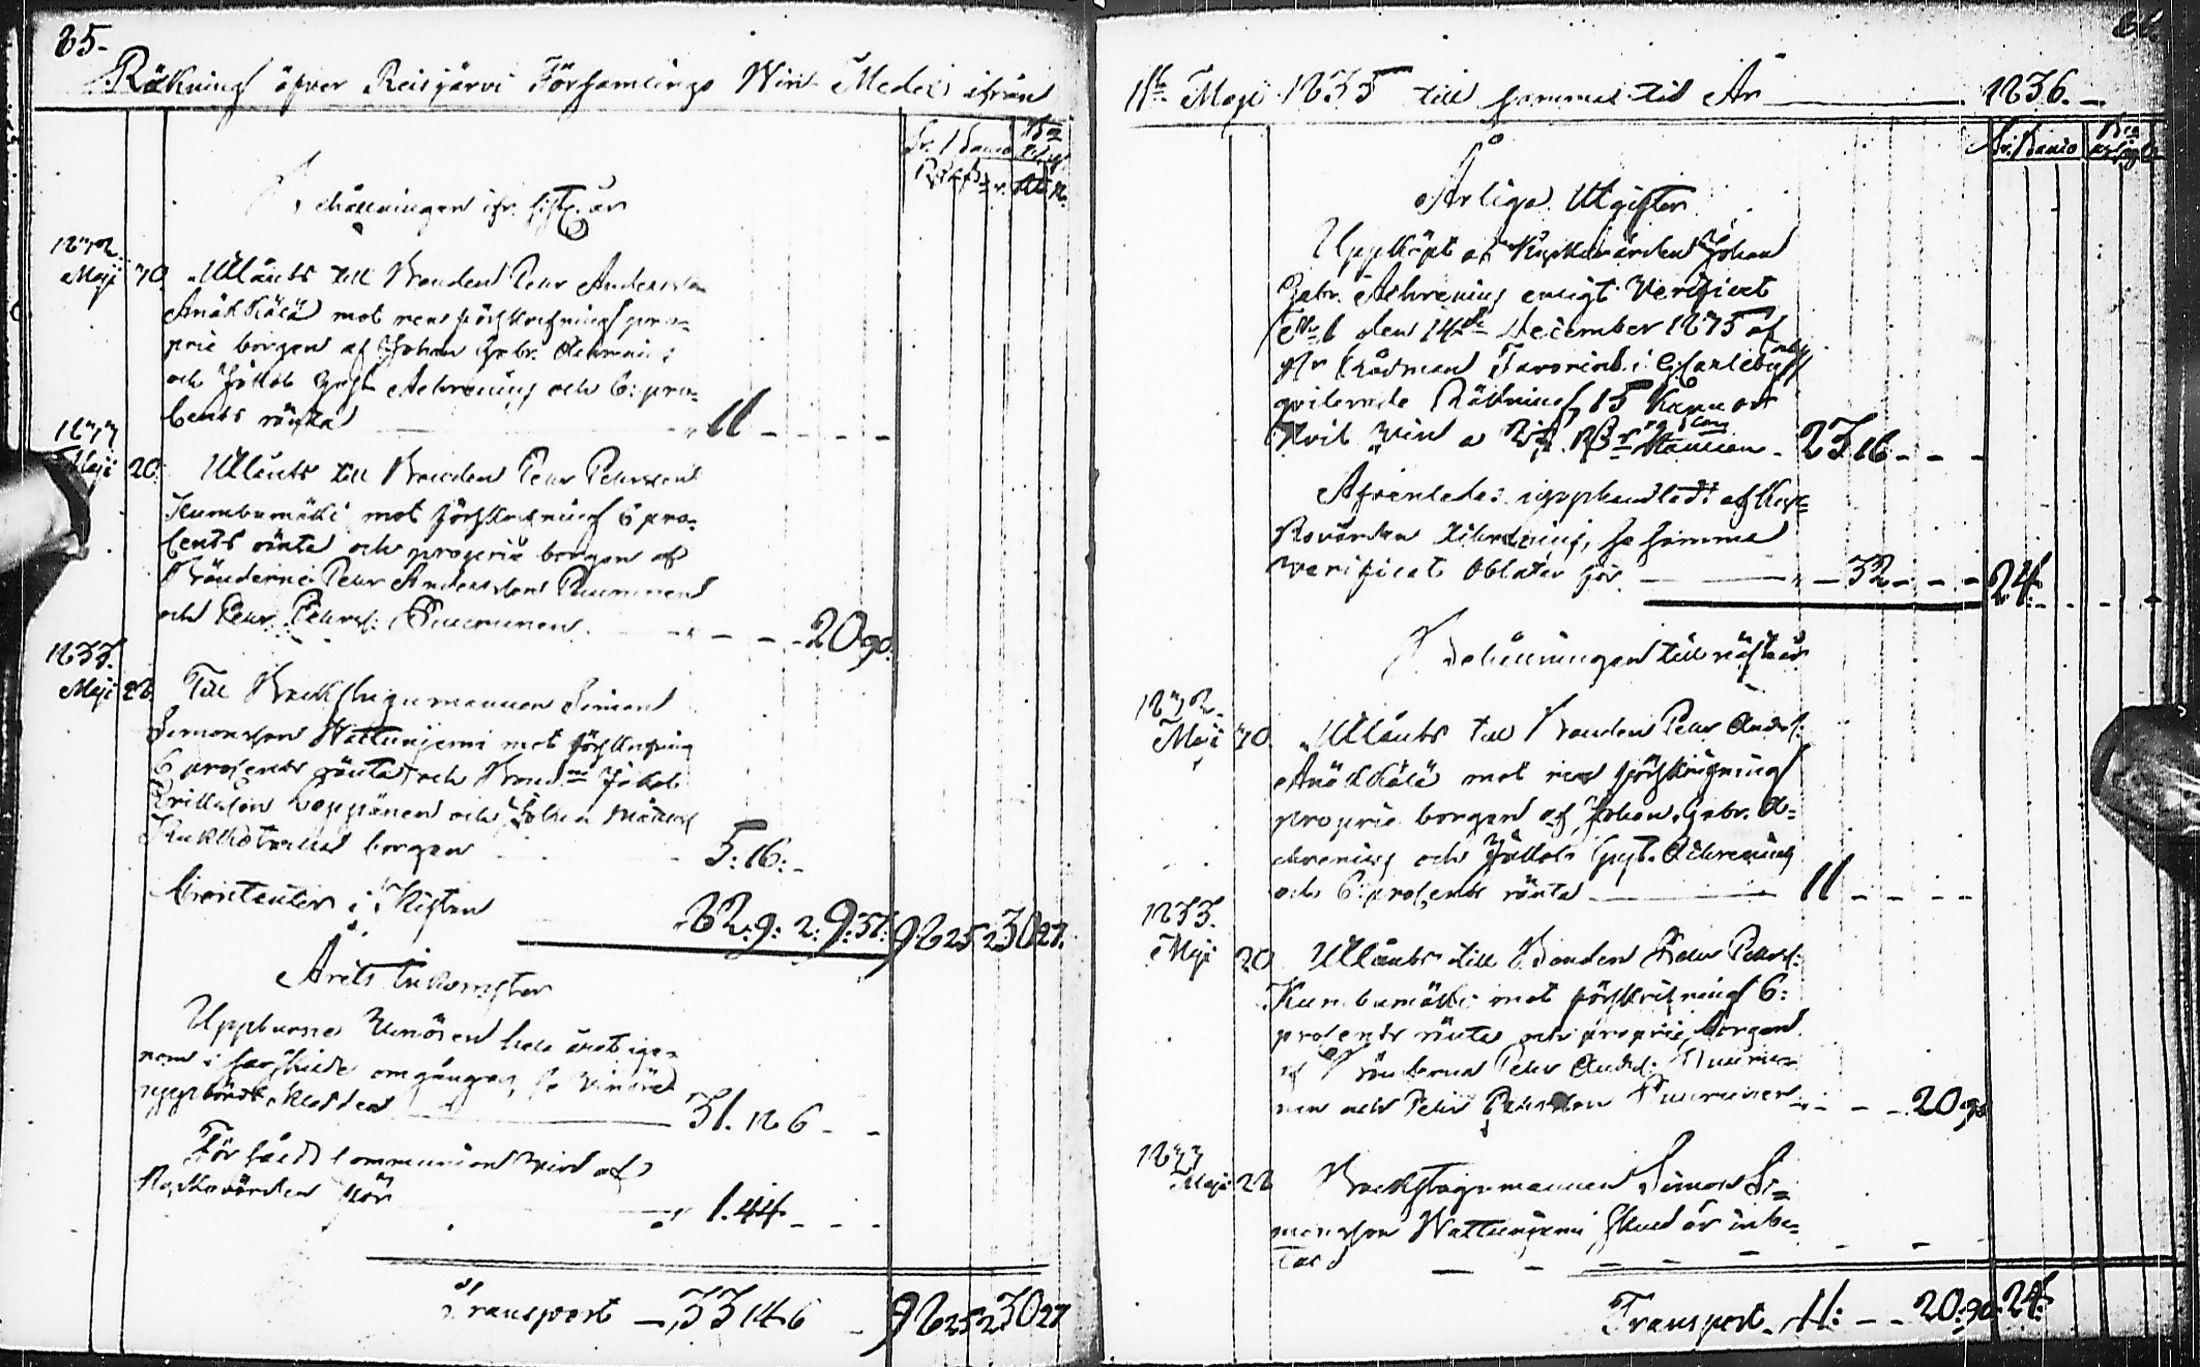 85.
Räkning öfver Reisjärvi Församlings Win Medel ifrån
Sv. Banco
Behållningen ifr. sistl. år
1832
Maji 30 Utlånts till Bonden Petr Andersson
Anäkkälä mot rev förskrifning pro-
prie borgen af Johan Gabr. Aehrening
och Jakob Gust. Aehrening och 6: pro-
cents ränta 11 - - - -
1833
Maji 20 Utlånts till Bonden Petr Pehrsson
Kumbumäki mot förskrifning 6 pro-
cents ränta och proprie borgen af
Bönderne Petr Andersson Puurunen
och Petr Pehrs: Puurunen - - - 20 90.
1833.
Maji 22 Till Backstugumannen Simon
Simonsson Wattuniemi mot förskrifning
6 procents ränta och Bond Jakob
Erikssin Leppänen och Johan
borgen 5: 16: -
Contanter i Kistan 82: 9: 2: 9: 37: 98 25 2 30 27.
Årets Inkomster
Uppburne Vinören hela året ige-
nom i särskilde omgångar, se Vinöres
uppbörds Kladden 31. 12 6 - -
För såld Communion Vin af
Kyrkovärden för 1. 44 - - -
Transport - 33 14 6 - 98 25 2 30 27

1 Maji 1835 till samma tid År 1836. -
Sv. Banco
Årlige Utgifter
Uppköpt af Kyrkovärden Johan
Gabr. Aehrening enligt Verificat
den 14de December 1835 af
Hr Rådman Favorin i GCarleby
qvitterade Räkning 15 Kannor
Hvit Vin a Kannan - 23 16 - - -
Afvenledes upphandlade af Kyr-
kovärden Aehrening, se samma
verificat Oblater för - 32 - - - 24. - - -
Behållningen till näst år
1832
Maji 30 Utlånts till Bonden Petr Anders:
Anäkkälä mot rev förskrifning
proprie borgen af Johan Gabr. A-
ehrening och Jakob Gust. Aehrening
och 6: procents ränta 11 - - - -
1833.
Maji 20 Utlånts till Bonden Petr Pehrs:
Kumbumäki mot förskrifning 6:
procents ränta och proprie borgen
af Bönderna Petr Anders: Puuru-
nen och Petr Pehrsson Puurunen - - - 20 90
1833
Maji 22 Backstugumannen Simon Si-
monsson Wattuniemi skuld är inbe-
tald - - - - - -
Transport 11: - - 20: 90: 24: